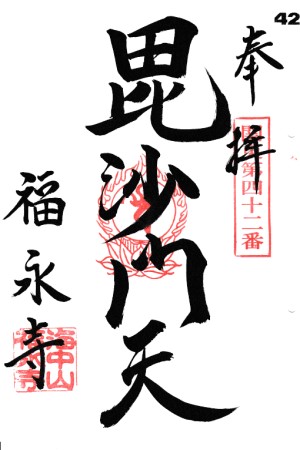 42
奉拝
第四十二番
毘沙門天
福永寺
海中山
福永寺